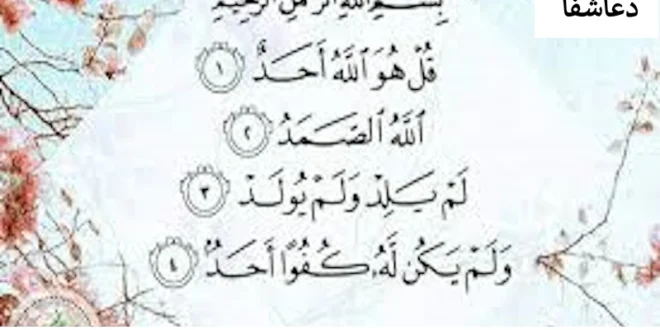 دعاشفا
بِسْمِ ٱللَّهِ ٱلرَّحْمَٰنِ ٱلرَّحِيمِ
قُلْ هُوَ ٱللَّهُ أَحَدٌ ١
ٱللَّهُ ٱلصَّمَدُ ٢
لَمْ يَلِدْ وَلَمْ يُولَدْ ٣
وَلَمْ يَكُن لَّهُۥ كُفُوًا أَحَدٌۢ ٤